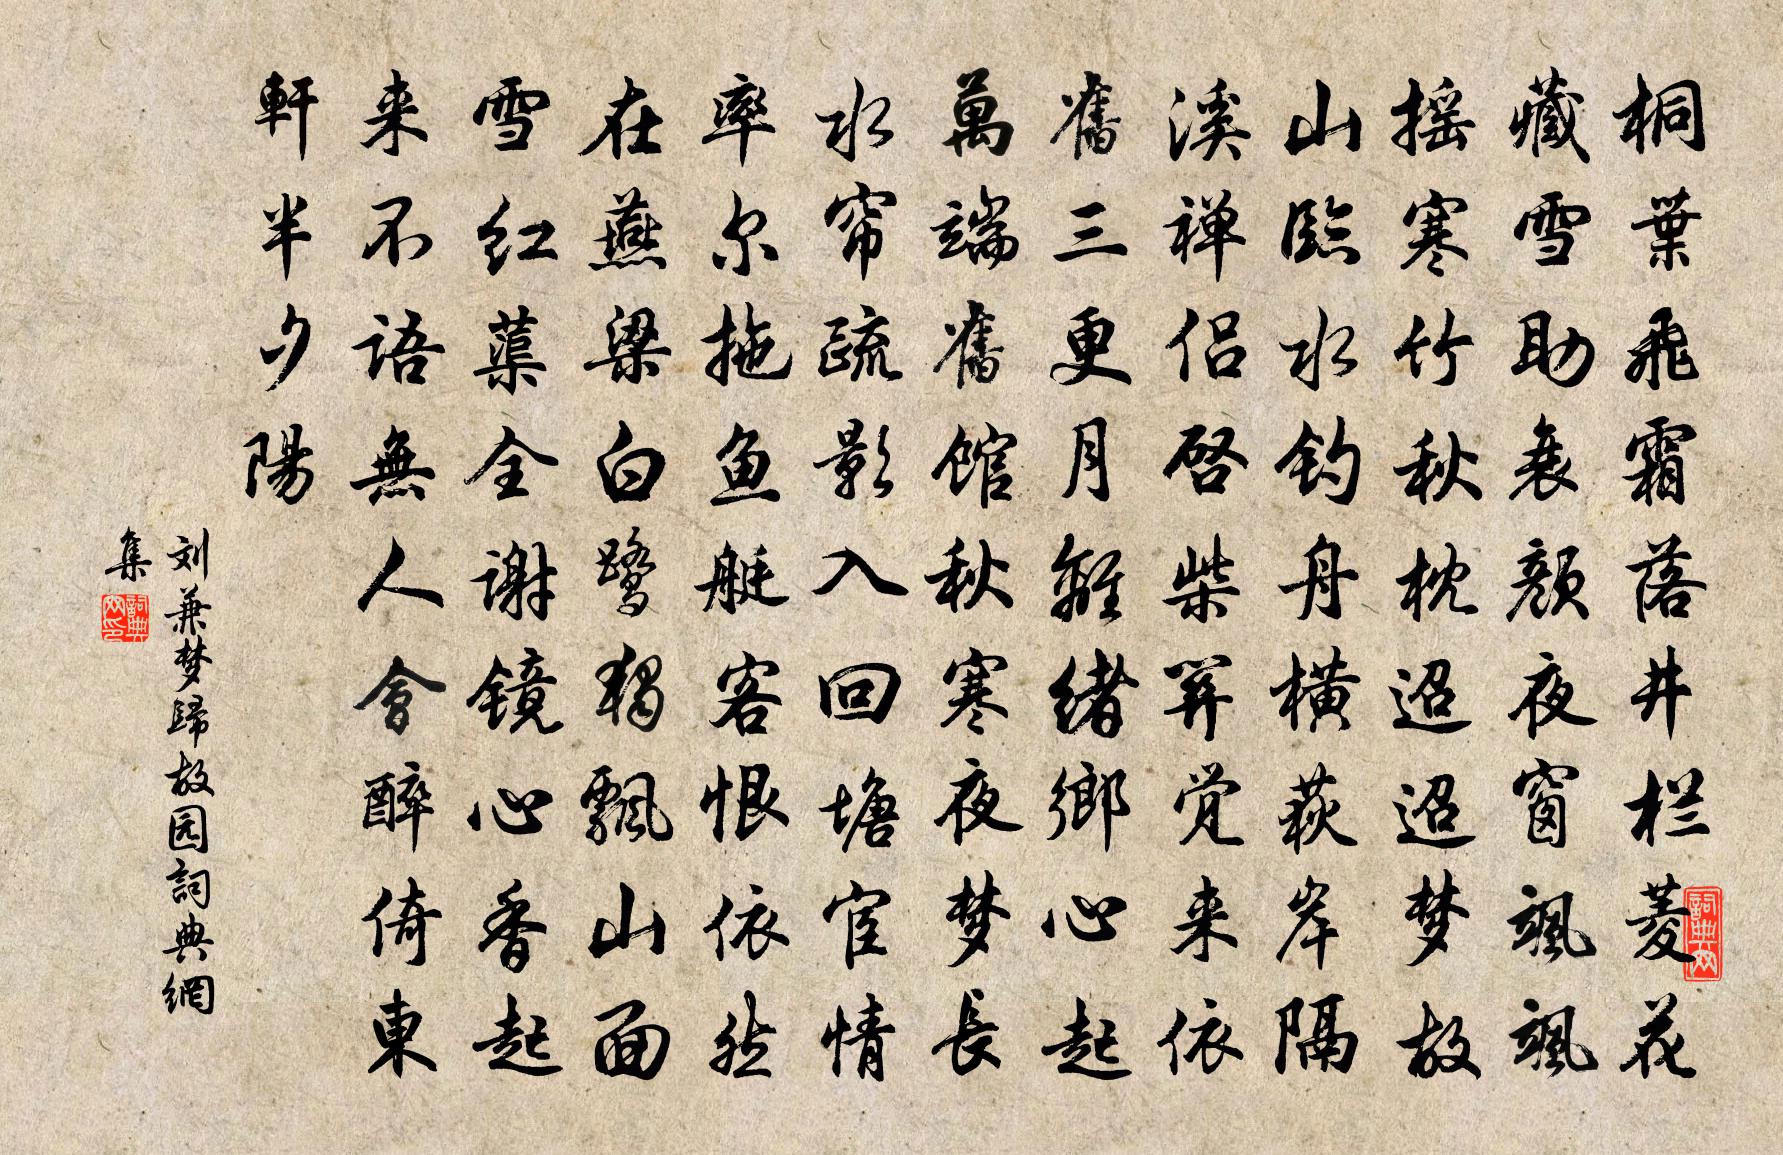 桐葉飛霜落井栏菱花
藏雪助衰颜夜窗颯颯
摇寒竹秋枕迢迢梦故
山臨水钓舟横荻岸隔
溪禅侣启柴關觉来依
舊三更月離绪鄉心起
萬端舊馆秋寒夜梦長
水帘疏影入回塘宦情
率尔拖鱼艇客恨依然
在燕梁白鹭獨飄山面
雪红蕖全谢镜心香起
来不语無人會醉倚東
軒半夕陽
刘兼梦歸故园詞典網
集
詞典网
詞典网印